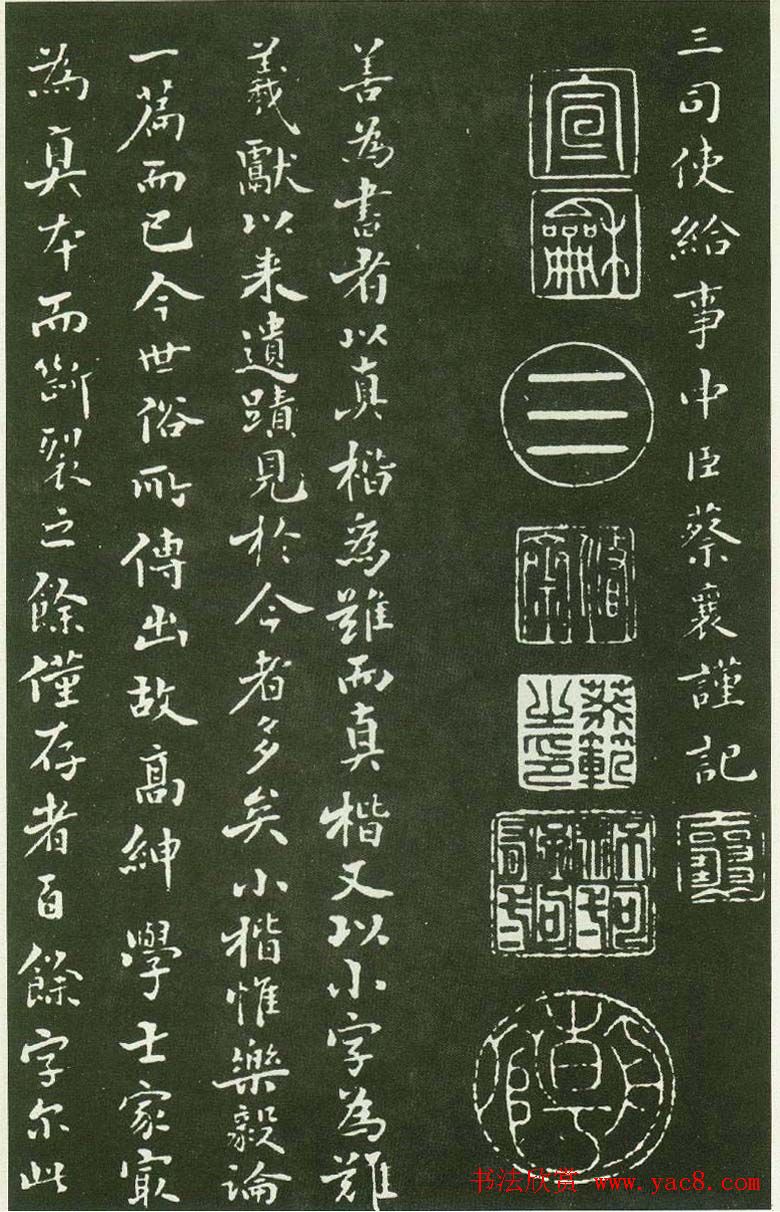 三司使給事中臣蔡襄謹記
宣
龢
善為書者以真楷為難而真楷又以小字為難
羲獻以来遺蹟見於今者多矣小楷惟樂毅論
一篇而已今世俗所傳出故高紳學士家冣
為真本而斷裂之餘僅存者百餘字尔此
书法欣赏 www.yac8.com